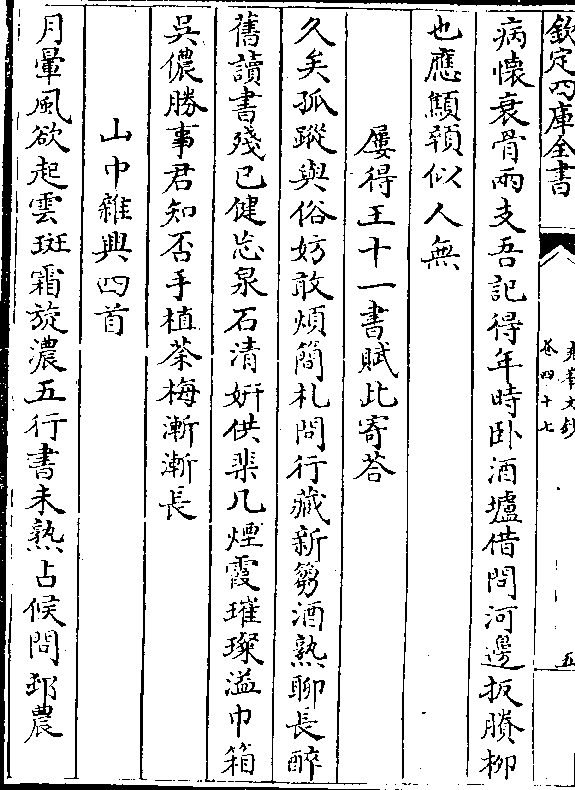 欽定四庫全書
堯峯文鈔
卷四十七
五
病懷衰骨兩支吾記得年時卧酒壚借問河邊扳賸柳
也應顦顇似人無
屢得王十一書賦此寄荅
久矣孤蹤與俗妨敢煩簡札問行藏新篘酒熟聊長醉
舊讀書殘已健忘泉石清妍供棐几煙霞璀璨溢巾箱
吳儂勝事君知否手植茶梅漸漸長
山中雜興四首
月暈風欲起雲斑霜旋濃五行書未熟占候問邨農